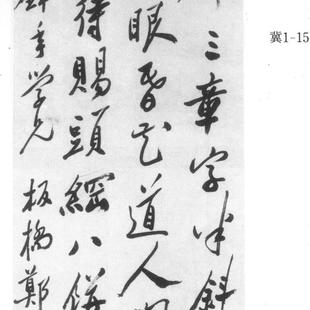 三章字半斜
眼昏花道人
待賜頭綱八餅
年學兄 板橋鄭
冀1-15